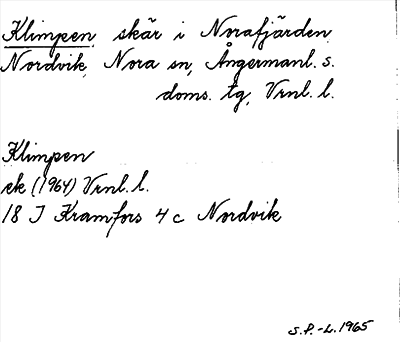 Klimpen, skär i Norafjärden,
Nordvik, Nora sn, Ångermanl. s.
doms. tg, Vrnl. l.
Klimpen
ek (1964) Vrnl. l.
18 J Kramfors 4 c Nordvik
S.P.-L. 1965